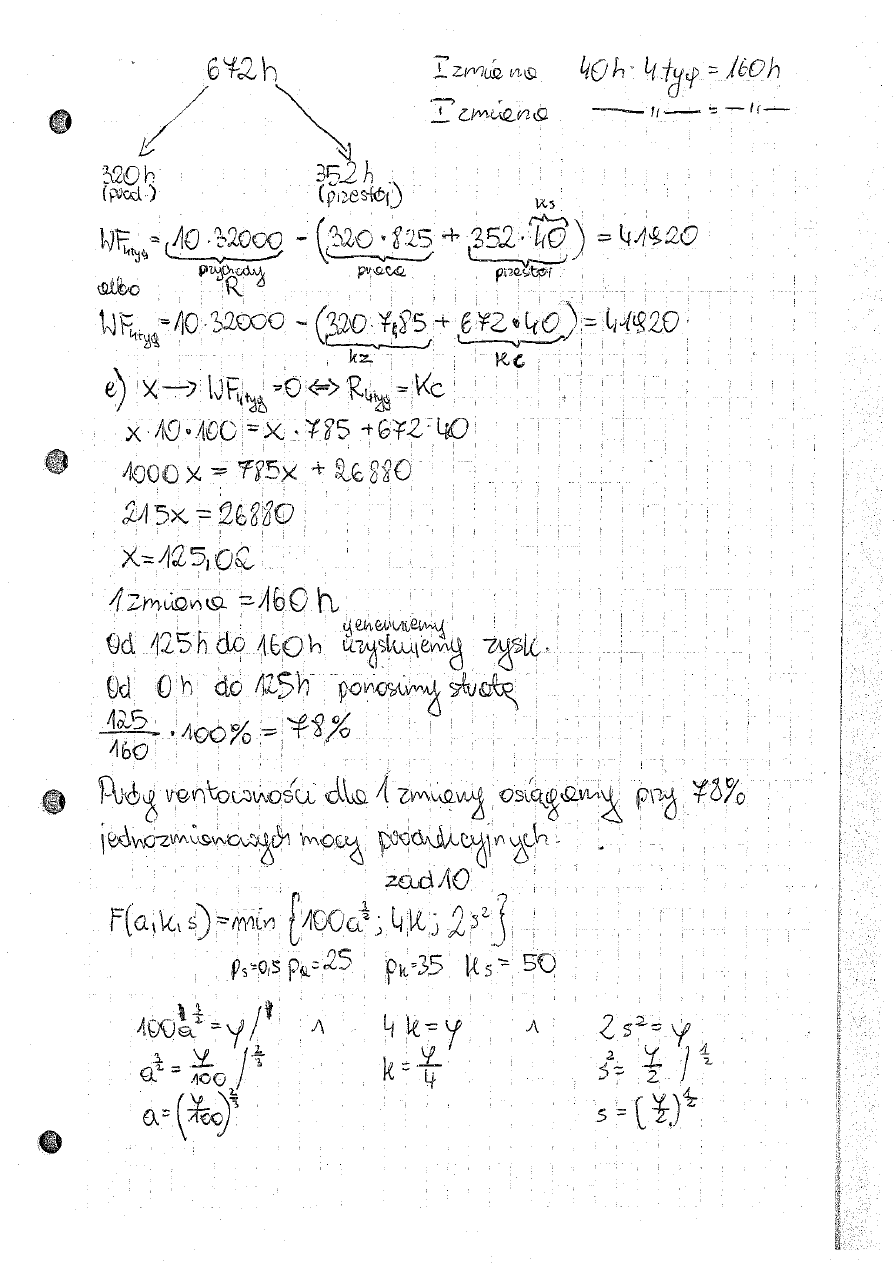 672h
I zmiana 40h · 4 tyg = 160h
I zmiana —— 〃 —— = — 〃 —
320h 352h
(prod.) (przestój)
ks
WF4tyg = 10 · 32000 - (320 · 825 + 352 · 40) = 41920
przychody praca przestój
albo R
WF4tyg = 10 · 32000 - (320 · 785 + 672 · 40) = 41920
kz kc
e) x → WF4tyg = 0 ⇔ R4tyg = Kc
x · 10 · 100 = x · 785 + 672 · 40
1000x = 785x + 26880
215x = 26880
x = 125,02
1 zmiana = 160h
generujemy
Od 125h do 160h uzyskujemy zysk.
Od 0h do 125h ponosimy stratę
125/160 · 100% = 78%
Próg rentowności dla 1 zmiany osiągamy przy 78%
jednozmianowych mocy produkcyjnych.
zad 10
F(a,k,s) = min {100a^(3/2); 4k; 2s²}
ps=0,5 pa=25 pk=35 ks= 50
100a^(3/2) = y / ∧ 4k = y ∧ 2s² = y
a^(3/2) = y/100 /^(2/3) k = y/4 s² = y/2 /^(1/2)
a = (y/100)^(2/3) s = (y/2)^(1/2)